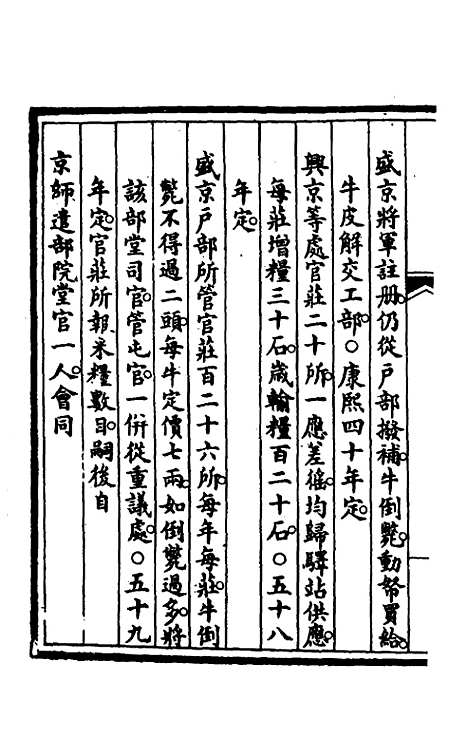 盛京將軍註冊仍從戶部撥補牛倒斃動帑買給
牛皮解交工部○康熙四十年定
興京等處官莊二十所一應差徭均歸驛站供應
每莊增糧三十石歲輸糧百二十石○五十八
年定
盛京戶部所管官莊百二十六所每年每莊牛倒
斃不得過二頭每牛定價七兩如倒斃過多將
該部堂司官管屯官一併從重議處○五十九
年定官莊所報米糧數目嗣後自
京師遣部院堂官一人會同